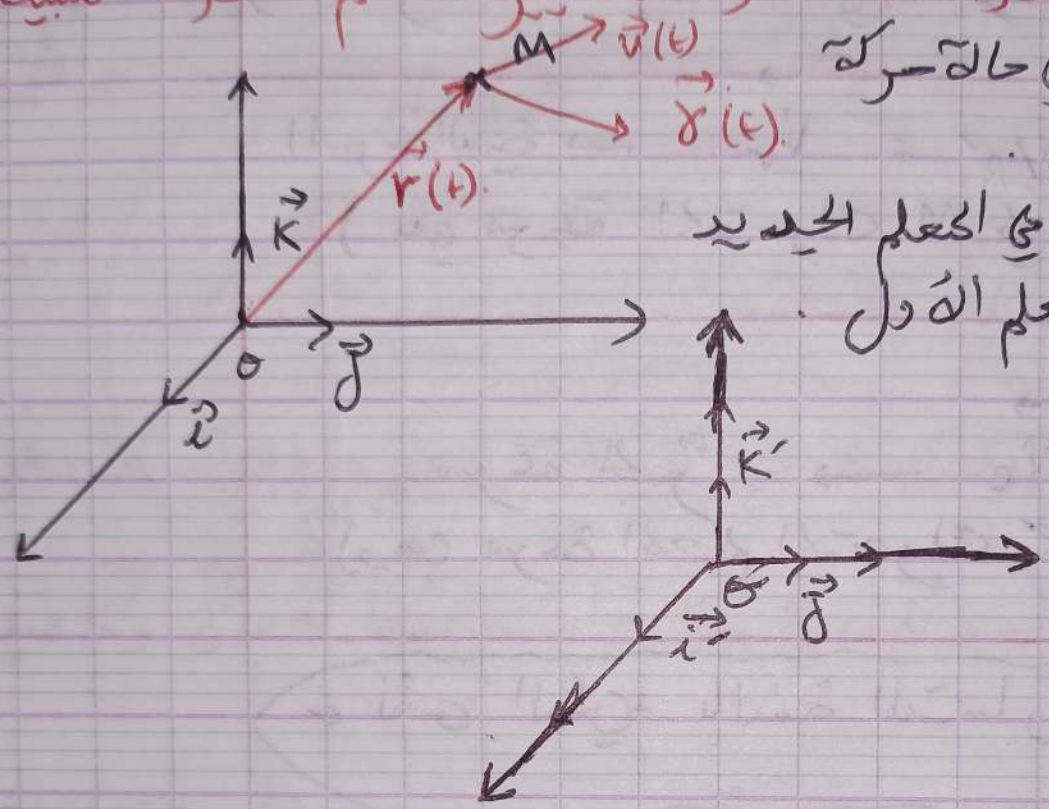 M
v⃗(t)
حالة حركة
γ⃗(t).
r⃗(t).
k⃗
في المعلم الجديد
O
j⃗
i⃗
k⃗'
O'
j⃗
i⃗'